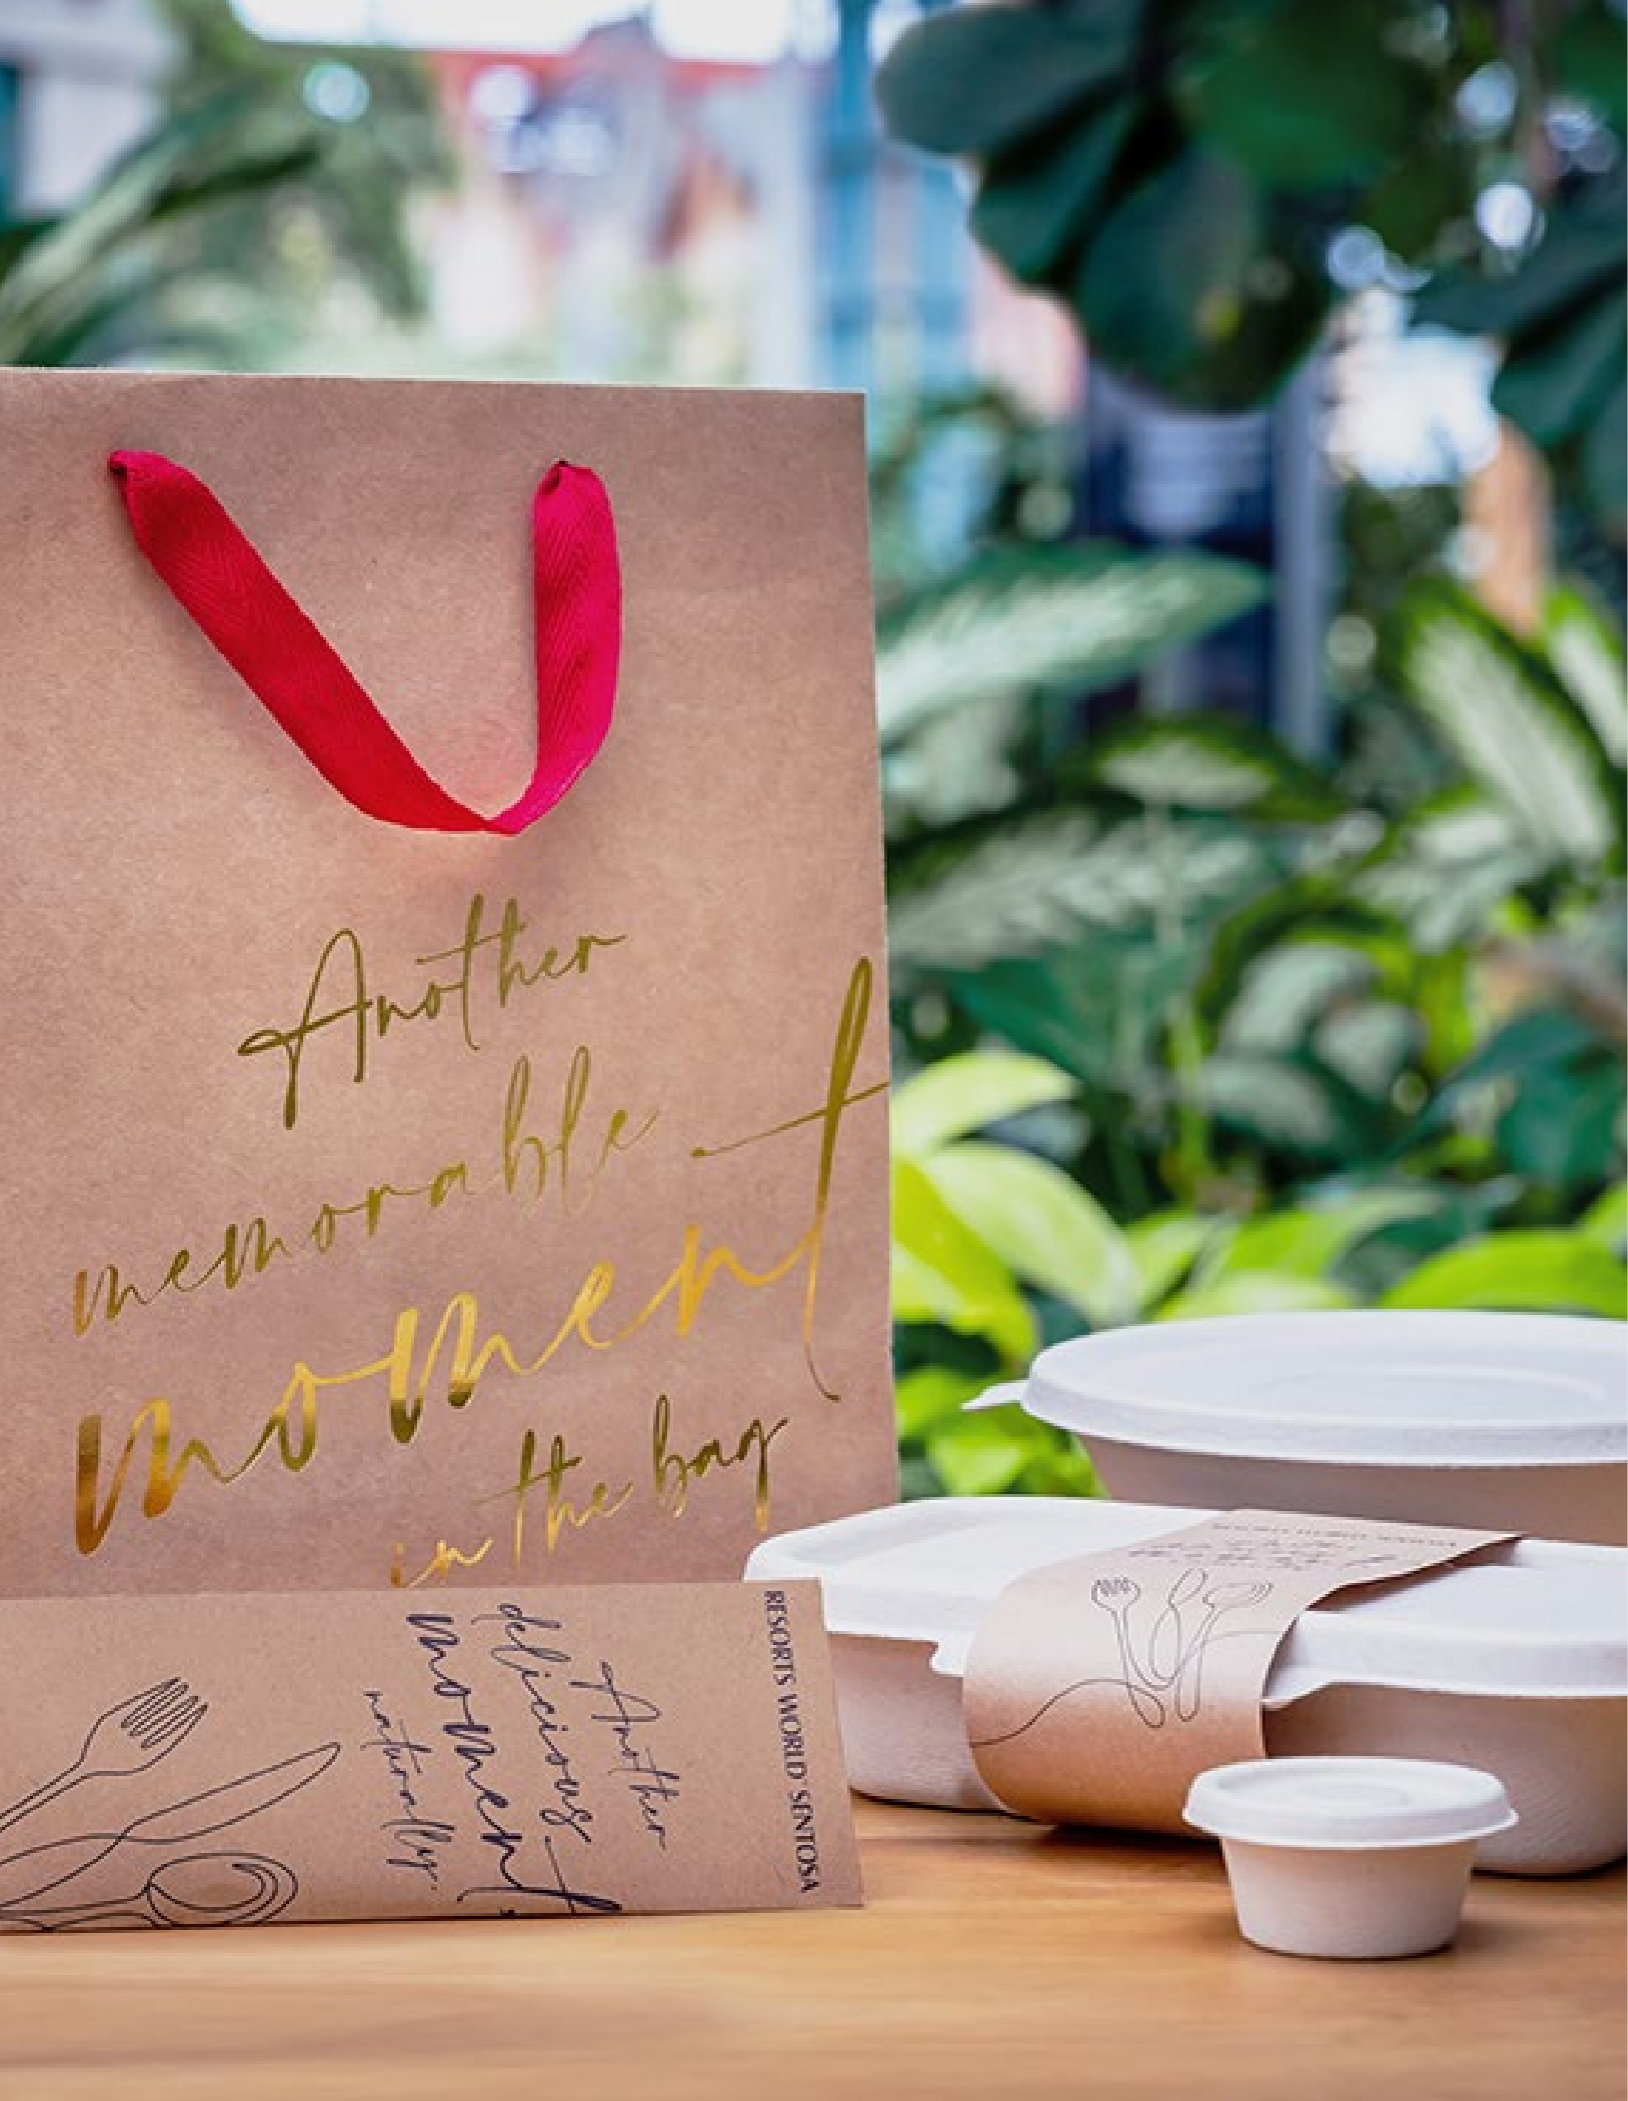 Another
memorable
moment
in the bag
RESORTS WORLD SENTOSA
Another
delicious
moment,
naturally.